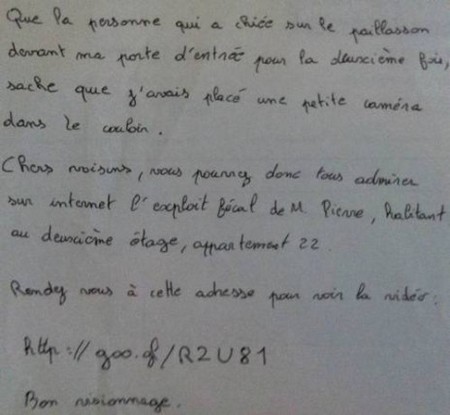 Que la personne qui a chiée sur le paillasson
devant ma porte d'entrée pour la deuxième fois,
sache que j'avais placé une petite caméra
dans le couloir.
Chers voisins, vous pourrez donc tous admirer
sur internet l'exploit fécal de M. Pierre, habitant
au deuxième étage, appartement 22.
Rendez vous à cette adresse pour voir la vidéo :
http://goo.gf/R2U81
Bon visionnage.